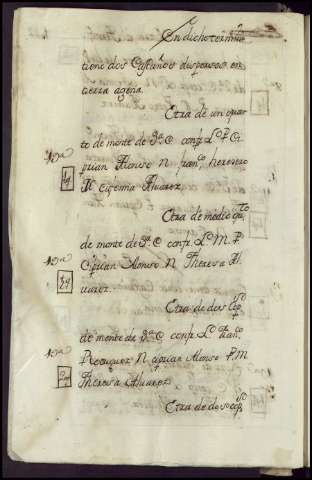 En dicho termino
tiene dos Castaños dispersos en
tierra agena.
Otra de un quar
te de monte de 3ª C confª L. P. Ci
prian Alonso N. franco heredero
M. Eigennia Alvarez
Otra de medio quto
de monte de 3ª C confª L. M. P.
Ciprian Alonso N. Theresa Al
varez.
Otra de dos Cops
de monte de 3ª C confª L. franco
Rodriguez N. Ciprian Alonso P. M.
Theresa Alvarez
Otra de dos cops